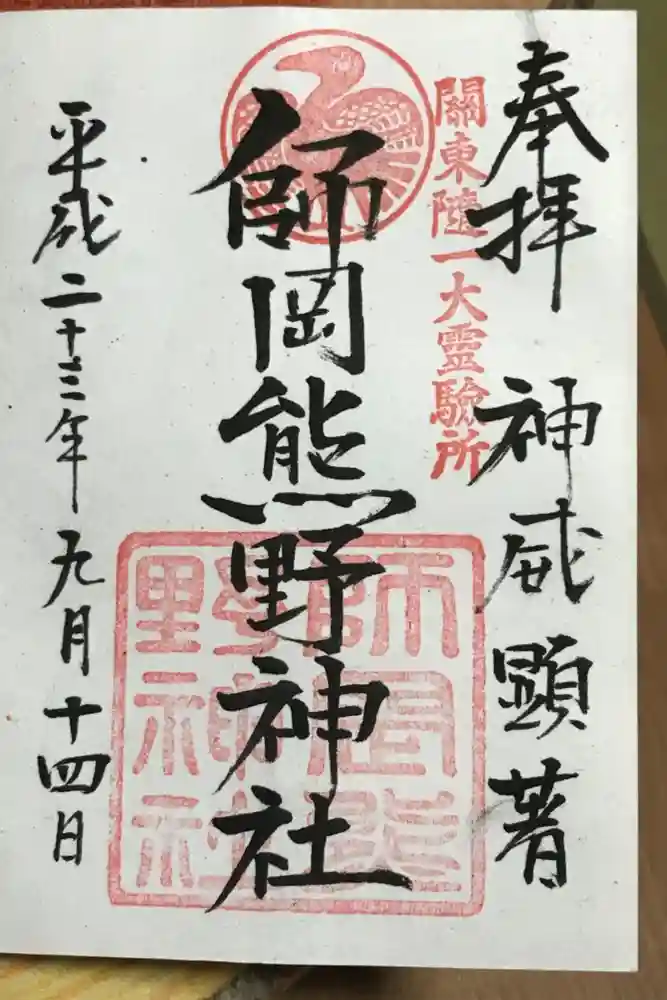 奉拝 神威顕著
關東随一大霊驗所
師岡熊野神社
平成二十三年九月十四日